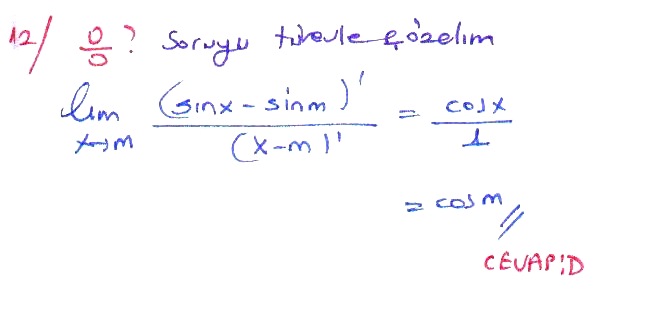 12/ 0/0 ? Soruyu türevle çözelim
lim x→m (sinx - sinm)' / (x-m)' = cosx / 1
= cosm //
CEVAP: D